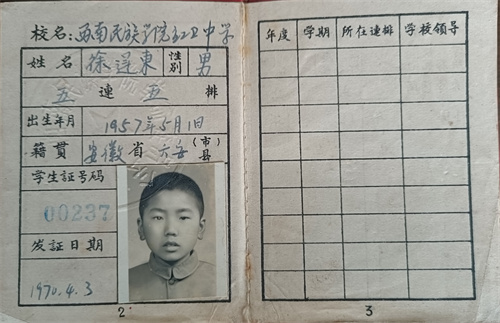 校名：西南民族学院红卫中学
姓名 徐遠東 性别 男
五 連 五 排
出生年月 1957年5月1日
籍貫 安徽省六安(市县)
学生証号码
00237
发証日期
1970.4.3
2
年度 学期 所在連排 学校領导
3